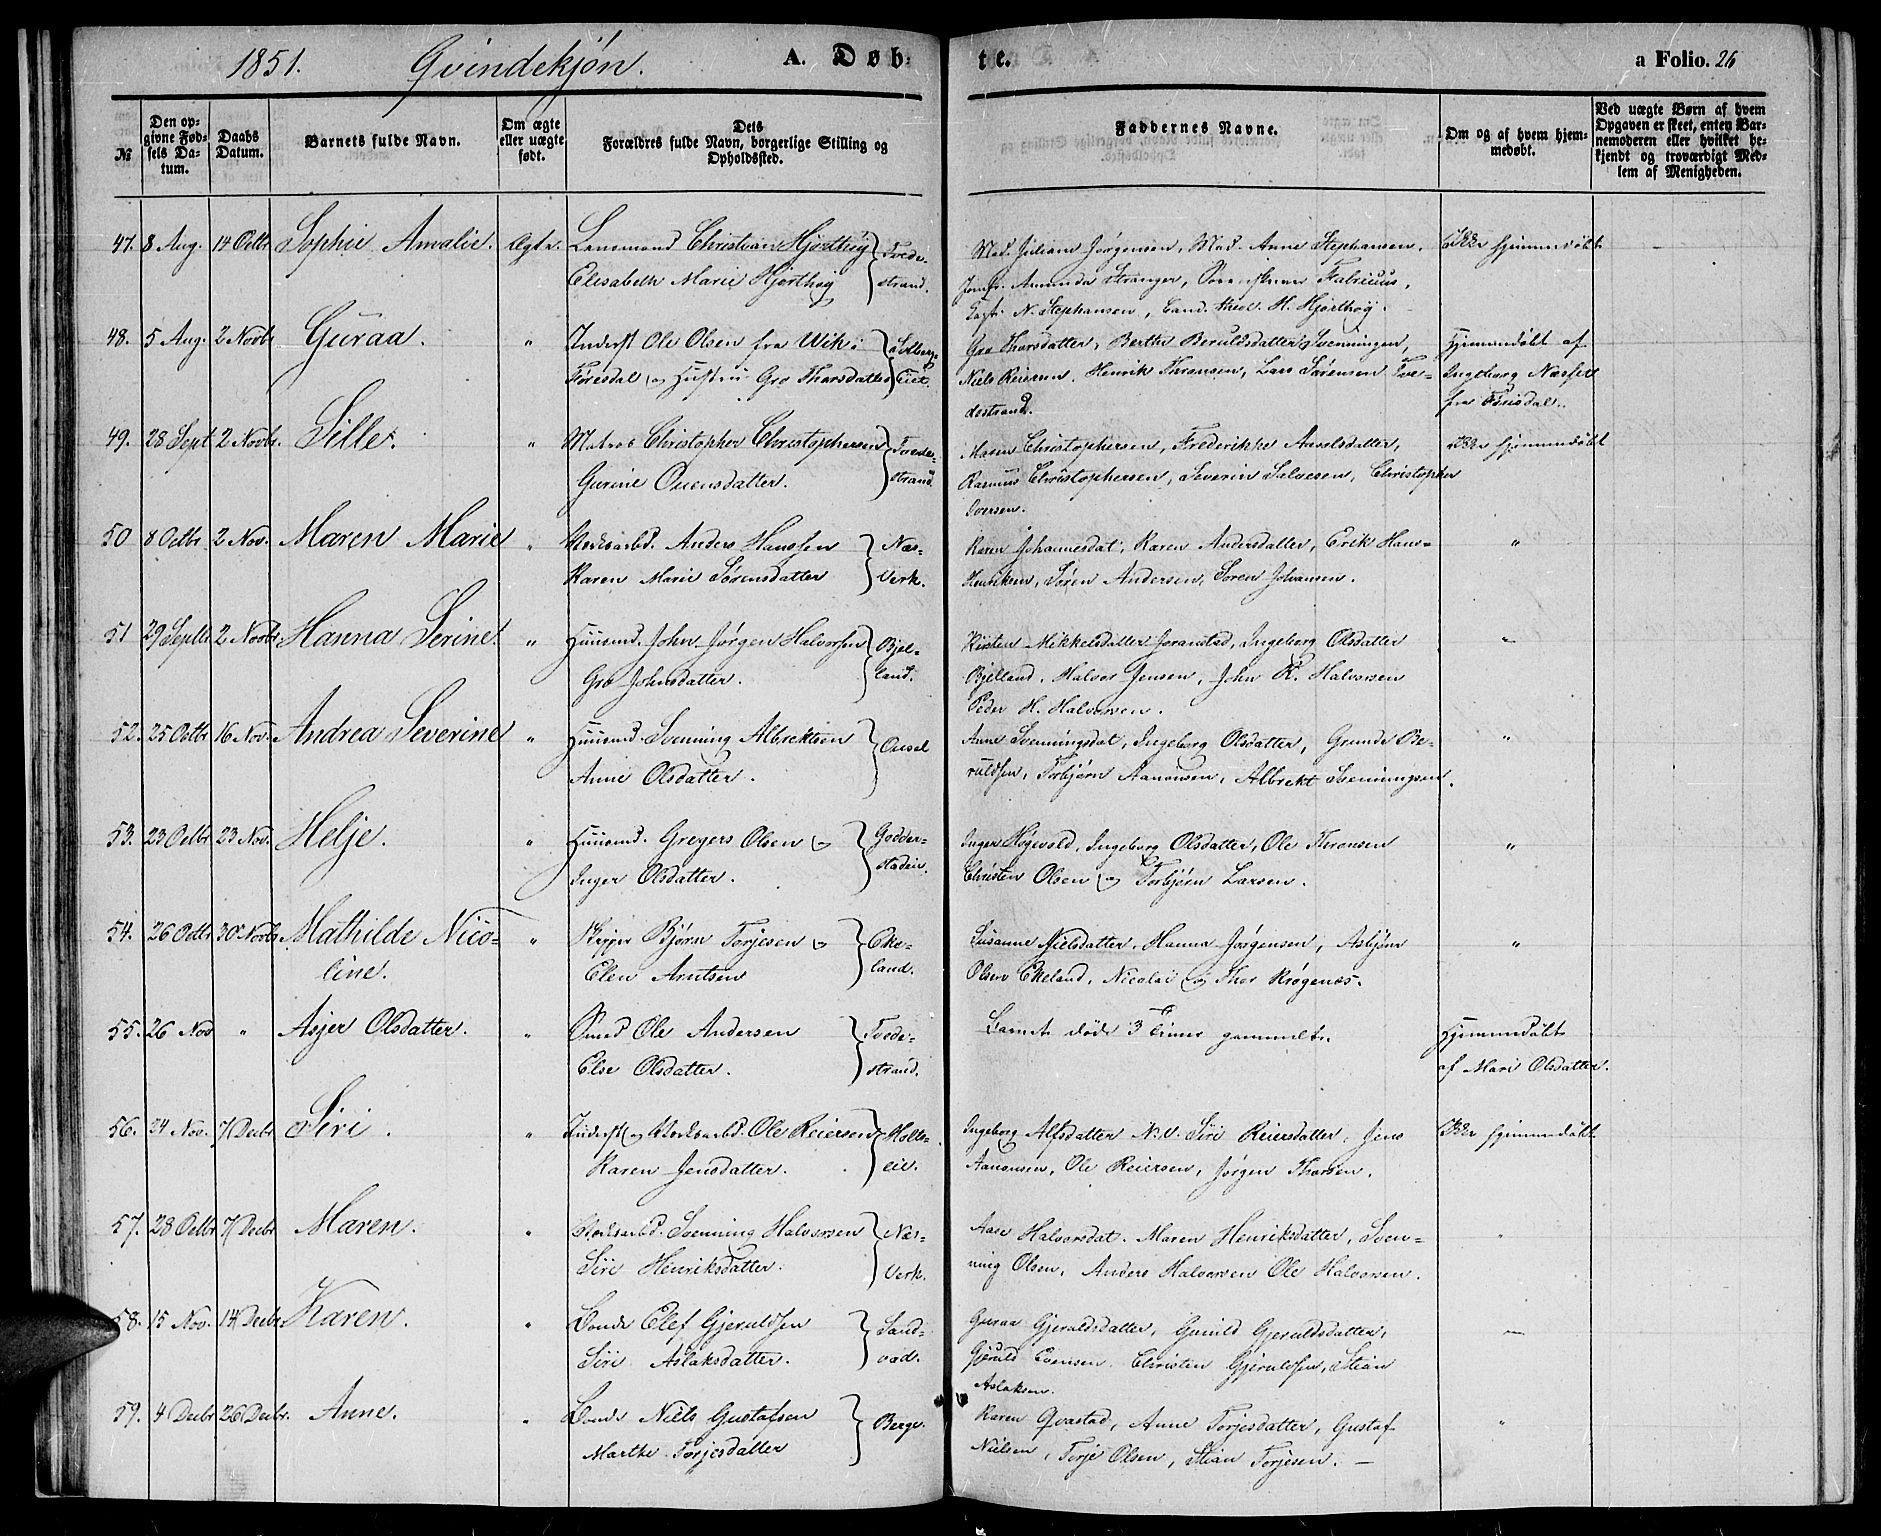 1851. Qvindekjön. A. Døb- te. a Folio. 26
№
Den opgivne Fødsels Datum.
Daabs Datum.
Barnets fulde Navn.
Om ægte eller uægte født.
Dets Forældres fulde Navn, borgerlige Stilling og Opholdssted.
Faddernes Navne.
Om og af hvem hjemmedøbt.
Ved uægte Børn af hvem Opgaven er skeet, enten Barnemoderen eller hvilket bekjendt og troværdigt Medlem af Menigheden.
47. 8 Aug. 14 Octbr Sophie Amalie. Ægte. Lensmand Christian Hjorthøy Tvede-
Elisabeth Marie Hjorthøy strand.
Mad. Juliane Jørgensen, Mad. Anne Stephansen, Ikke hjemmedøbt
Jomfr. Amunda Stranger, Fabricius,
N. Stephansen, Cand. theol. H. Hjorthøy.
48. 5 Aug. 2 Novbr Guraa. " Inderst Ole Olsen fra Wik i Solberg-
Foresdal og Hustru Gro Thorsdatter eiet.
Gro Thorsdatter, Berthe Beruldsdatter Svenningen, Hjemmedøbt af
Niels Reiersen, Henrik Thronsen, Lars Sørensen Tve- Ingeborg Næsset
destrand. fra Foresdal.
49. 28 Sept. 2 Novbr. Sille. " Matros Christopher Christophersen Tvede-
Gurine Ouensdatter. strand.
Maren Christophersen, Frederikke Axelsdatter, Ikke hjemmedøbt
Rasmus Christophersen, Severin Salvesen, Christopher
Iversen.
50 8 Octbr 2 Nov. Maren Marie " Værksarbd. Anders Hanssen Næs-
Karen Marie Sørensdatter Verk.
Karen Johannesdat, Karen Andersdatter, Erik Hans- "
Henriksen, Søren Andersen, Søren Johansen.
51 29 Septbr 2 Novbr. Hanna Serine. " Huusmd. John Jørgen Halvorsen Bjel-
Gro Johnsdatter. land.
Kirsten Mikkelsdatter Joranstad, Ingeborg Olsdatter "
Bjelland, Halvor Jensen, John R. Halvorsen
Peder H. Halvorsen.
52. 25 Octbr 16 Nov. Andrea Severine " Huusmd. Svenning Albrektsen Ousel
Anne Olsdatter.
Anne Svenningsdat, Ingeborg Olsdatter, Grunde Be- "
ruldsen, Torbjørn Aanonsen, Albrekt Svenningsen.
53. 23 Octbr 23 Nov. Helje. " Huusmd. Gregers Olsen og Godder-
Inger Olsdatter. stadeie.
Inger Høgevold, Ingeborg Olsdatter, Ole Thronsen "
Christen Olsen og Torbjørn Larsen.
54. 26 Octbr 30 Novbr Mathilde Nico- " Skipper Bjørn Torjesen og Eke-
line. Elen Arntsen land.
Susanne Nielsdatter, Hanna Jørgensen, Asbjørn "
Olsen Ekeland, Nicolai og Thor Krøgenæs.
55. 26 Nov " Asjer Olsdatter. " Smed Ole Andersen Tvede-
Else Olsdatter. strand.
Barnet døde 3 Timer gammelt. Hjemmedøbt
af Mari Olsdatter.
56. 24 Nov. 7 Decbr Siri. " Inderst og Værksarbd. Ole Reiersen Holte-
Karen Jensdatter. eie.
Ingeborg Alfsdatter N.V. Siri Reiersdatter, Jens Ikke hjemmedøbt
Aanonsen, Ole Reiersen, Jørgen Thorsen.
57. 28 Octbr 7 Decbr Maren. " Værksarbd. Svenning Halvorsen Næs-
Siri Henriksdatter. Verk.
Aase Halvorsdat. Maren Henriksdatter, Sven- "
ning Olsen, Anders Halvorsen Ole Halvorsen.
58. 15 Nov. 14 Decbr Karen. " Bonde Elef Gjeruldsen Sand-
Siri Aslaksdatter. vad.
Guraa Gjeruldsdatter, Gunild Gjeruldsdatter, —
Gjeruld Evensen, Christen Gjeruldsen, Stian
Aslaksen.
59. 4 Decbr 26 Decbr. Anne. " Bonde Niels Gustafsen Berge.
Marthe Torjesdatter
Karen Qvastad, Anne Torjesdatter, Gustaf "
Nielsen, Torje Olsen, Stian Torjesen. —